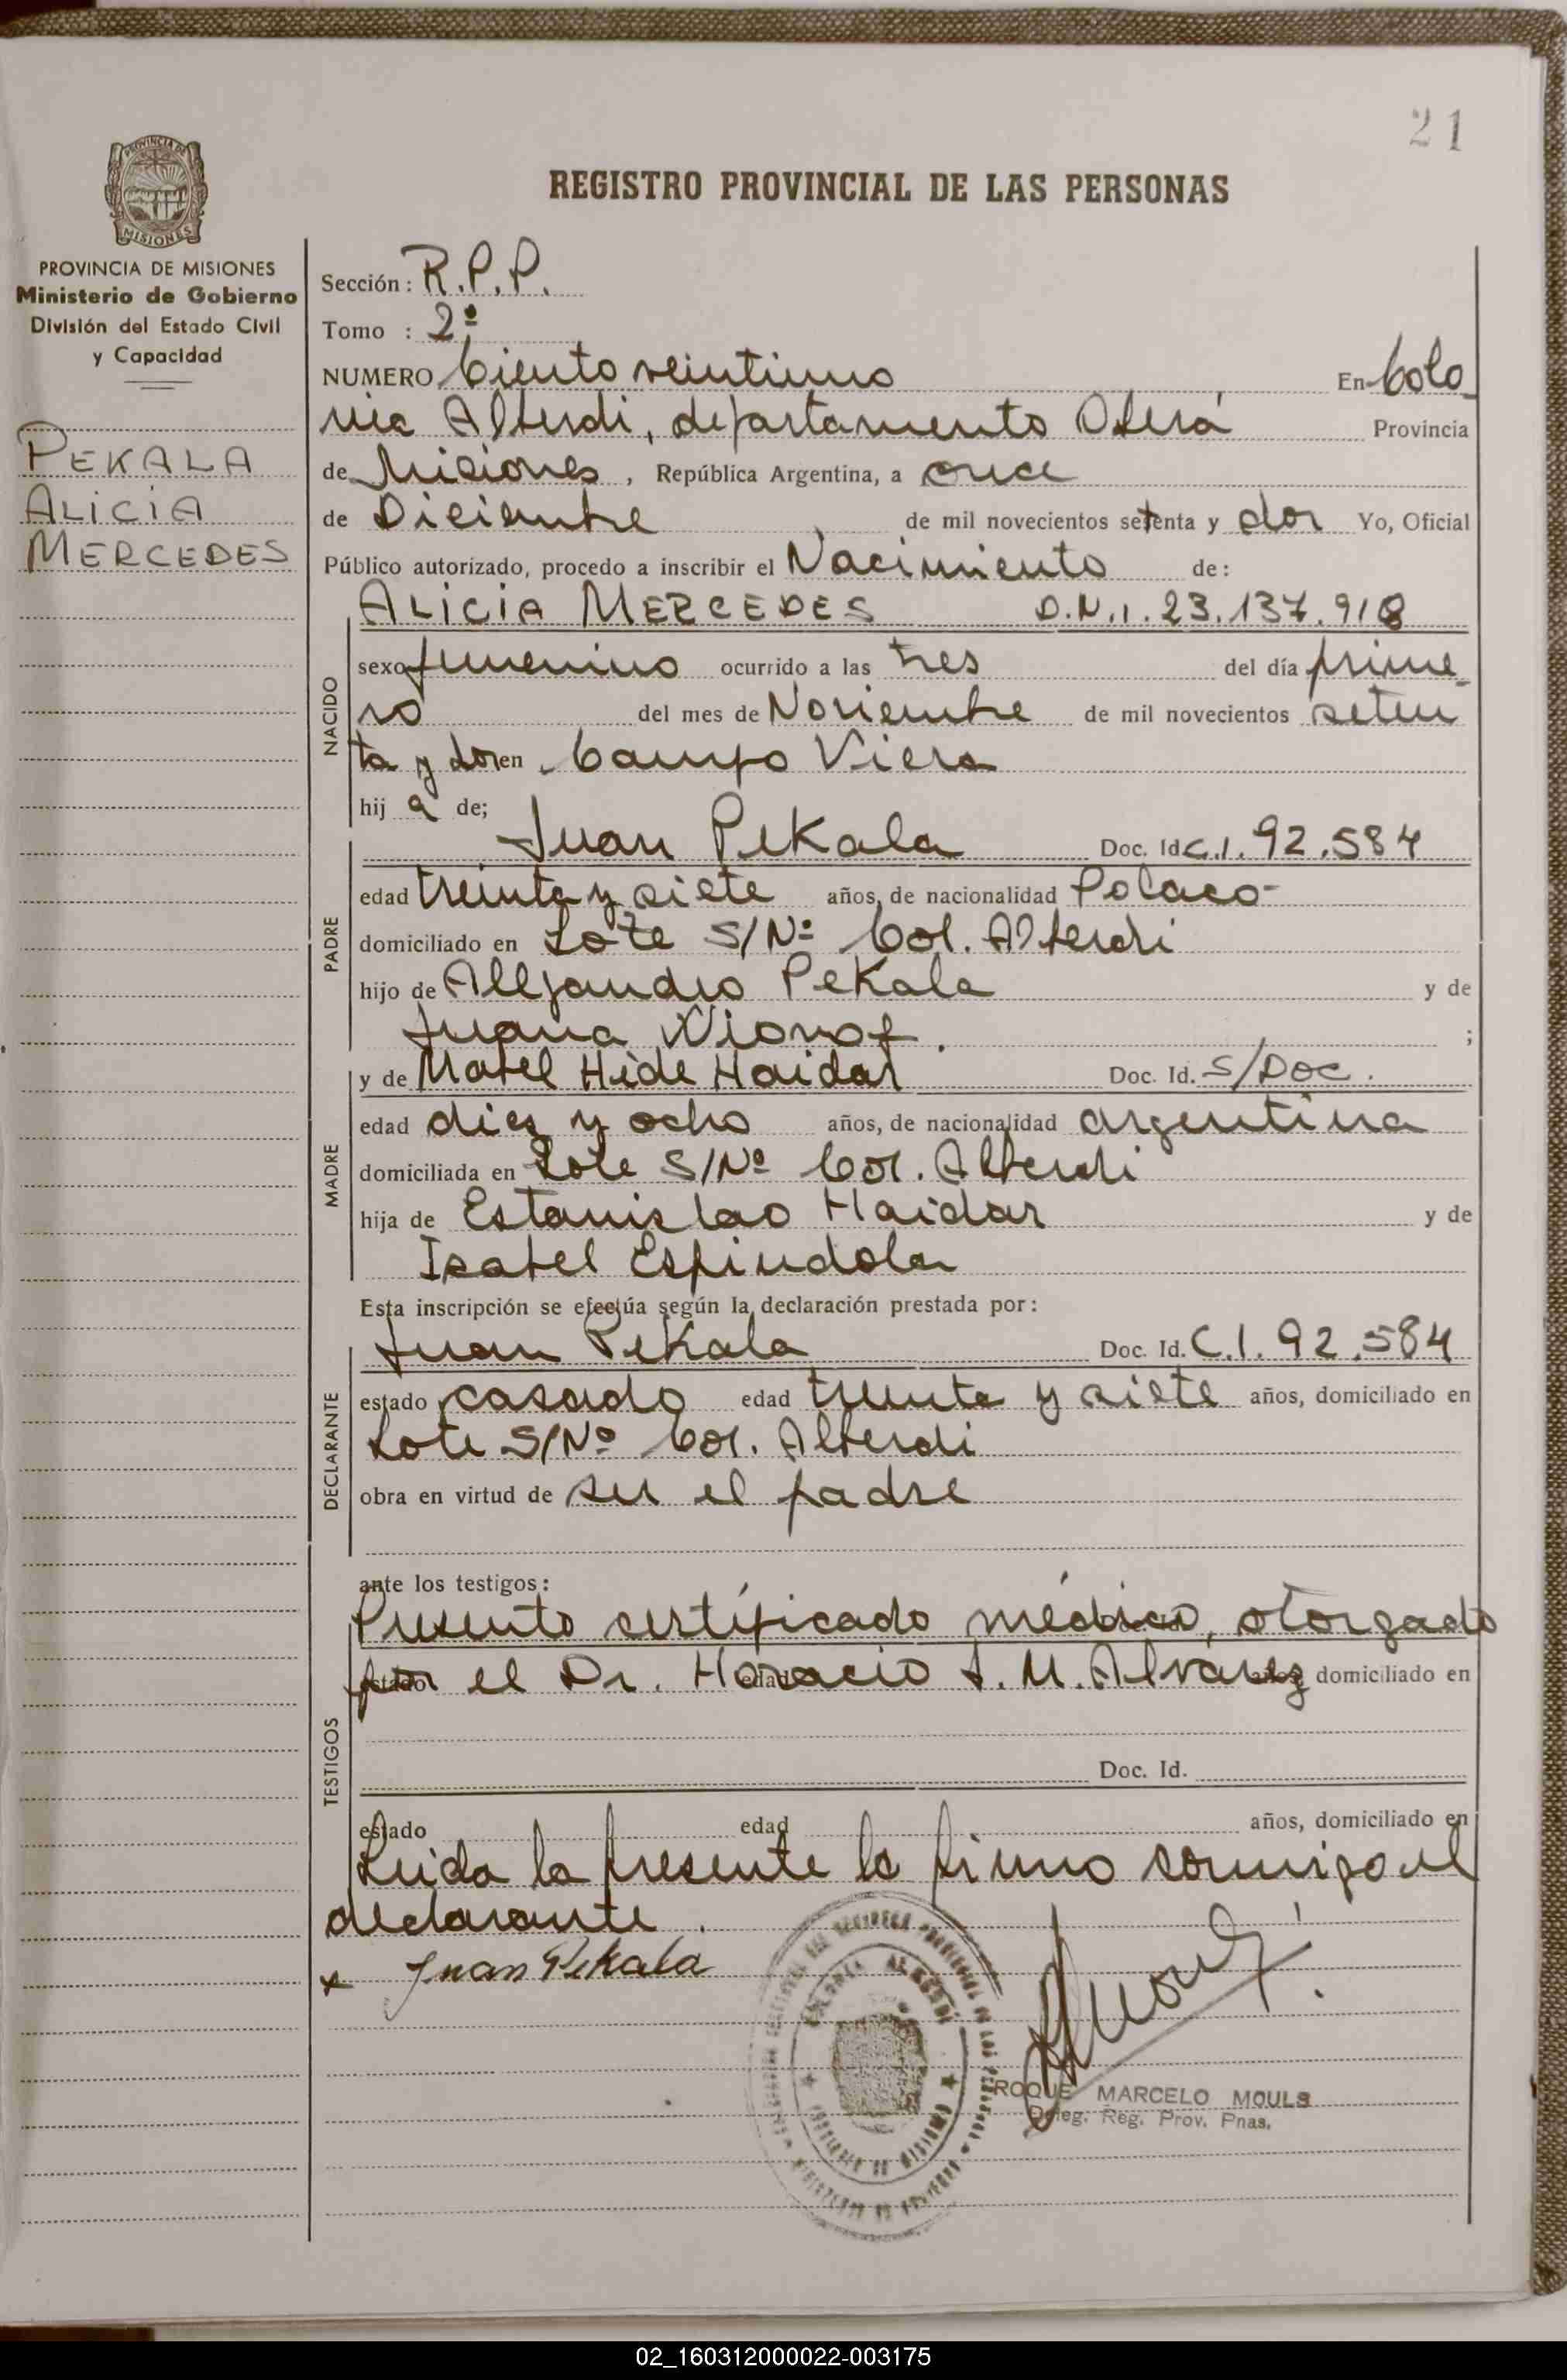 21
REGISTRO PROVINCIAL DE LAS PERSONAS
PROVINCIA DE MISIONES
Ministerio de Gobierno
División del Estado Civil
y Capacidad
PEKALA
ALICIA
MERCEDES
Sección: R.P.P.
Tomo : 2º
NUMERO Ciento veintiuno En Colo
nia Alberdi, departamento Oberá Provincia
de Misiones, República Argentina, a once
de Diciembre de mil novecientos setenta y dos Yo, Oficial
Público autorizado, procedo a inscribir el Nacimiento de:
ALICIA MERCEDES D.N.I. 23.137.918
NACIDO
sexo femenino ocurrido a las tres del día prime
ro del mes de Noviembre de mil novecientos seten
ta y dos en Campo Viera
hij a de;
PADRE
Juan Pekala Doc. Id C.I. 92.584
edad treinta y siete años, de nacionalidad Polaco-
domiciliado en Lote S/Nº Col. Alberdi
hijo de Alejandro Pekala y de
Juana ;
MADRE
y de Mabel Hide Haidar Doc. Id. S/Doc.
edad diez y ocho años, de nacionalidad argentina
domiciliada en Lote S/Nº Col. Alberdi
hija de Estanislao Haidar y de
Isabel Espindola
Esta inscripción se efectúa según la declaración prestada por:
DECLARANTE
Juan Pekala Doc. Id. C.I. 92.584
estado casado edad treinta y siete años, domiciliado en
Lote S/Nº Col. Alberdi
obra en virtud de ser el padre
TESTIGOS
ante los testigos:
Presento certificado médico, otorgado
por el Dr. Horacio J. M. Alvarez domiciliado en
Doc. Id.
estado edad años, domiciliado en
Leida la presente la firmo conmigo el
declarante.
x Juan Pekala
ROQUE MARCELO MOULS
Deleg. Reg. Prov. Pnas.
02_160312000022-003175